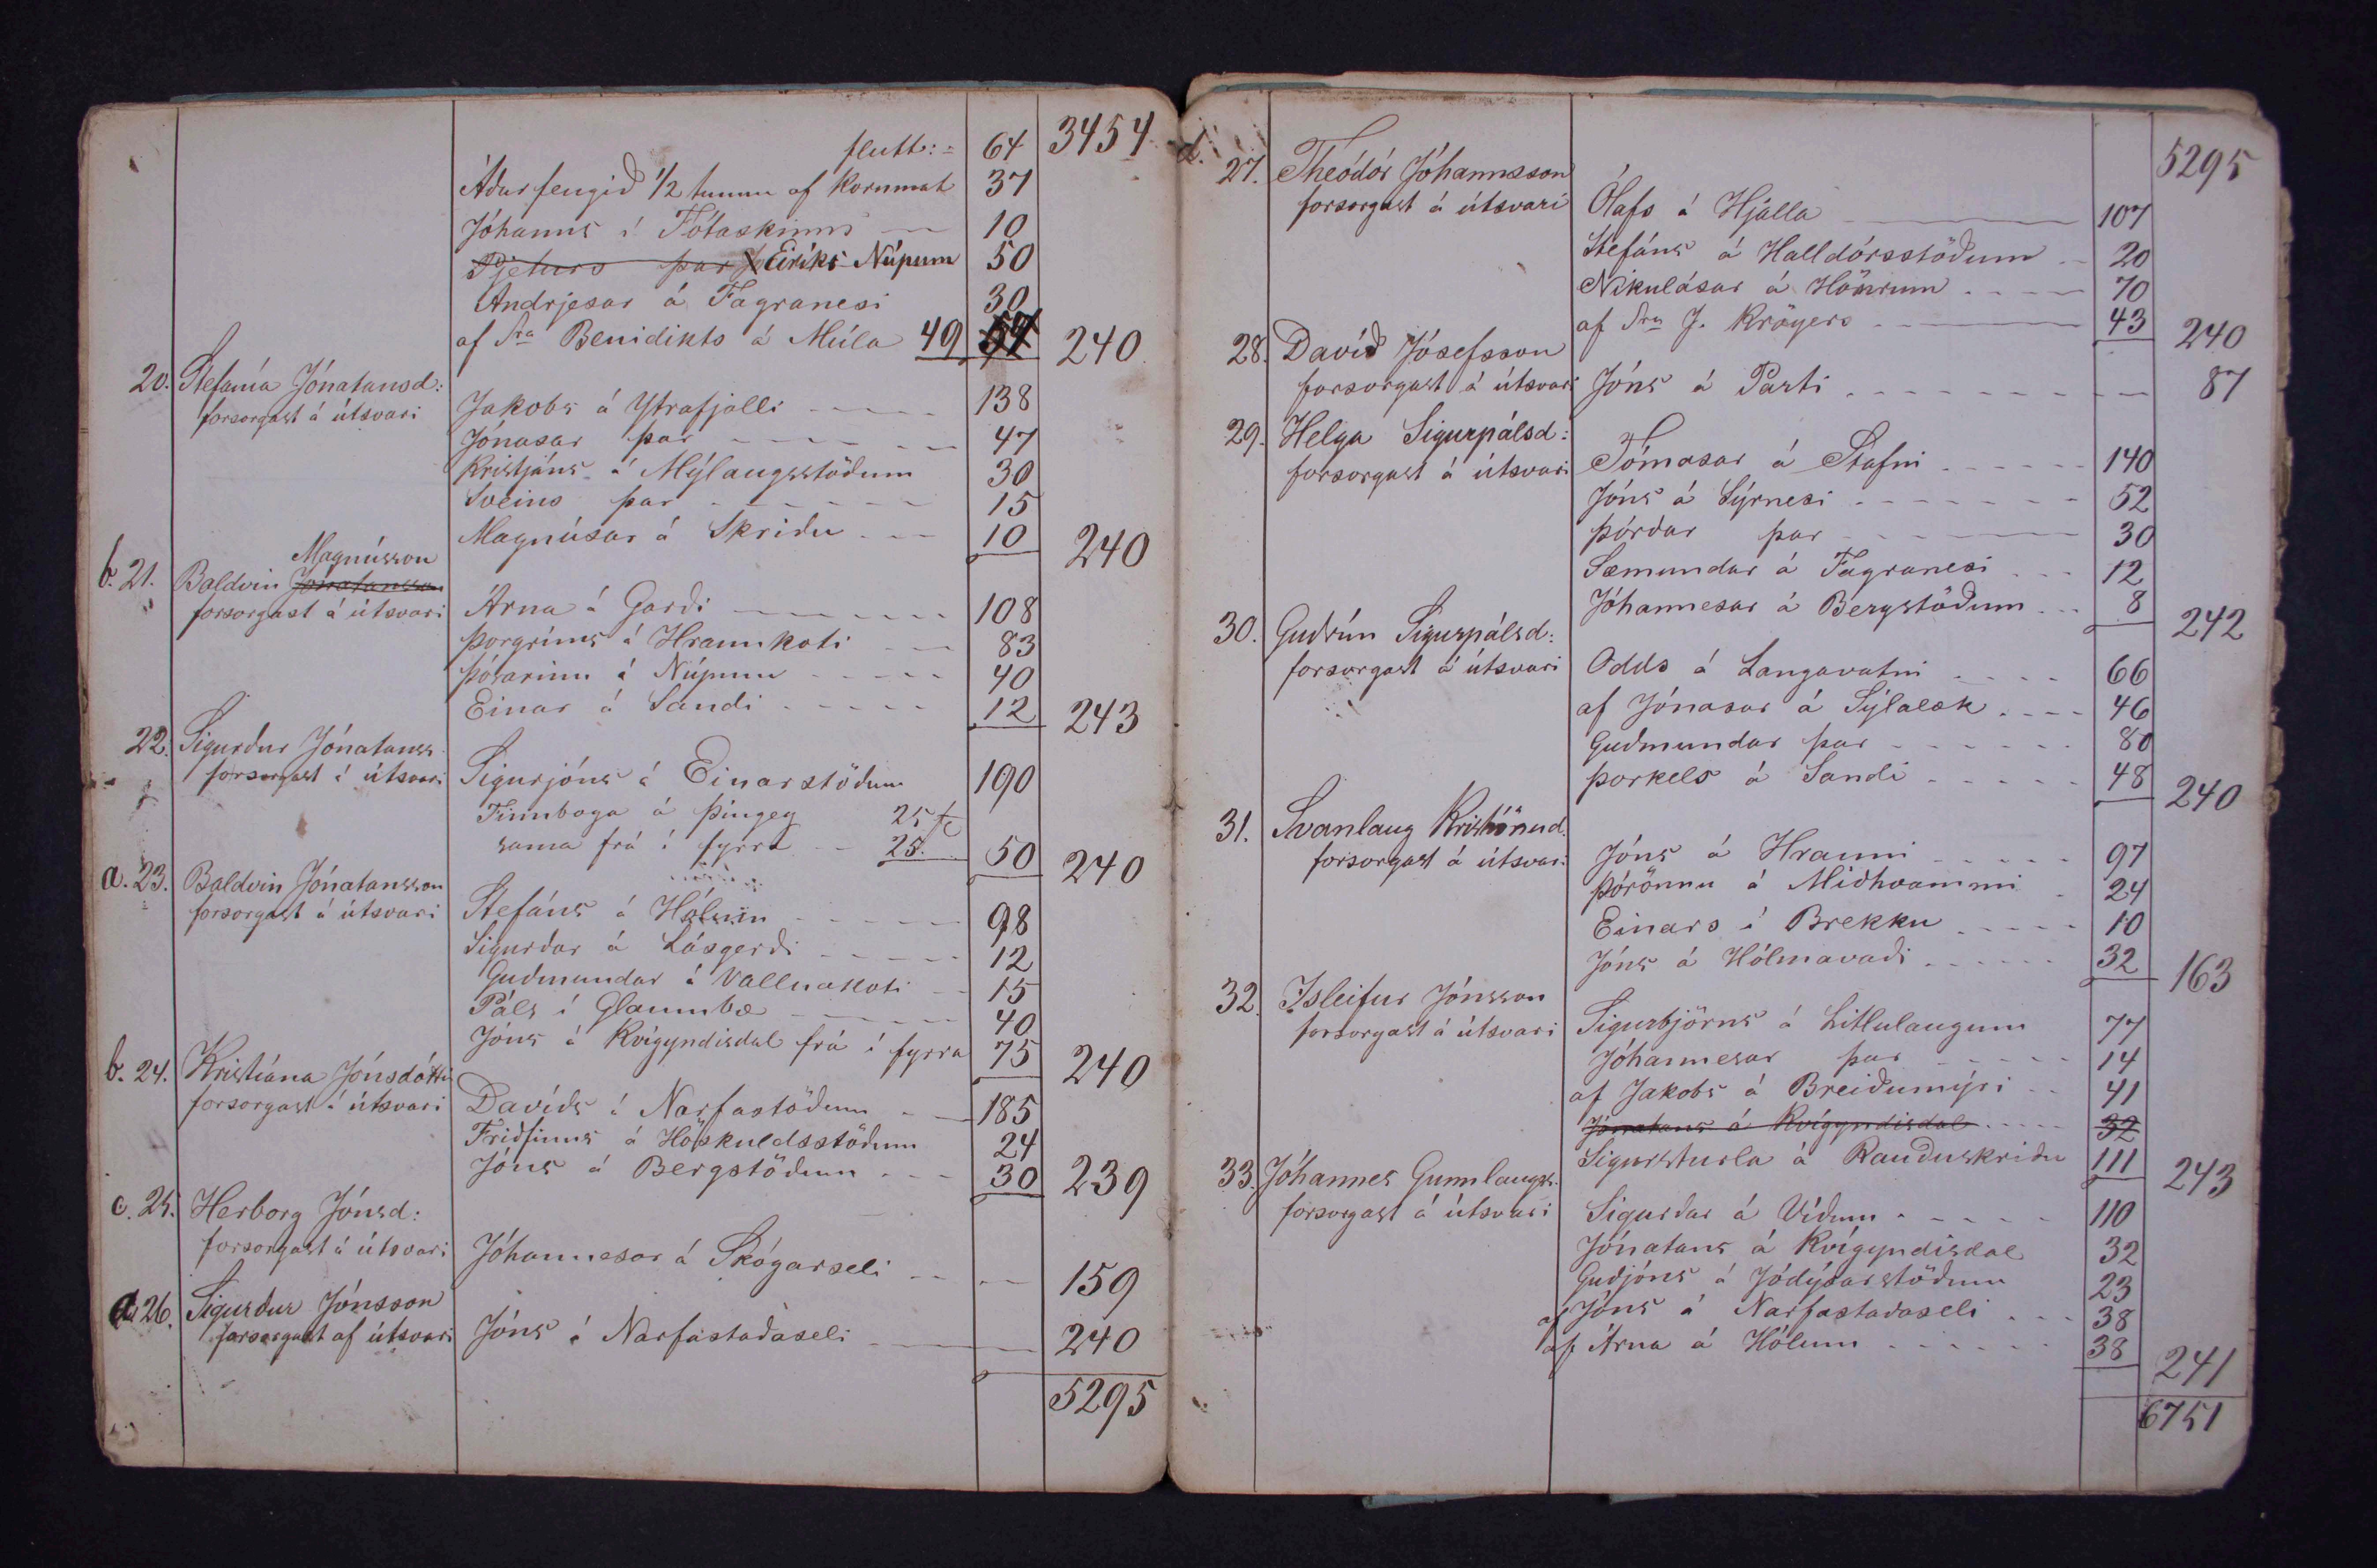 flutt:= 64 3454
Áður fengið 1/2 tunnu af kornmat 37
Jóhanns í Fótaskinni 10
Pjeturs þar Eiríks Núpum 50
Andrjesar á Fagranesi 30
af Sra Benidikts á Múla 49 240
20. Stefanía Jónatansd:
forsorgast á útsvari Jakobs á Ytrafjalli 138
Jónasar þar 47
Kristjáns á Mýlaugsstöðum 30
Sveins þar 15
Magnúsar á Skriðu 10 240
Magnússon
b. 21. Baldvin Jónatansson
forsorgast á útsvari Árna á Garði 108
Þorgríms á Hraunkoti 83
Þórarinn á Núpum 40
Einar á Sandi 12 243
22. Sigurður Jónatanss
forsorgast á útsvari Sigurjóns á Einarstöðum 190
Finnboga á Þingey 25
sama frá í fyrra 25. 50 240
a. 23. Baldvin Jónatansson
forsorgast á útsvari Stefáns á Hólum 98
Sigurðar á Lásgerði 12
Guðmundar á Vallnakoti 15
Páls í Glaumbæ 40
Jóns á Kvígyndisdal frá í fyrra 75 240
b. 24. Kristíana Jónsdóttir
forsorgast á útsvari Davíðs á Narfastöðum 185
Friðfinns á Höskuldsstöðum 24
Jóns á Bergstöðum 30 239
c. 25. Herborg Jónsd:
forsorgast á útsvari Jóhannesar á Skógarseli 159
d. 26. Sigurður Jónsson
forsorgast af útsvari Jóns á Narfastaðaseli 240
5295
d. 27. Theódór Jóhannsson 5295
forsorgast á útsvari Ólafs á Hjalla 107
Stefáns á Halldórsstöðum 20
Nikulásar á Hömrum 70
af Sra J. Kröyers 43 240
28. Davíð Jósefsson
forsorgast á útsvari Jóns á Parti 87
29. Helga Sigurpálsd:
forsorgast á útsvari Tómasar á Stafni 140
Jóns á Sýrnesi 52
Þórðar þar 30
Sæmundar á Fagranesi 12
Jóhannesar á Bergstöðum 8 242
30. Guðrún Sigurpálsd:
forsorgast á útsvari Odds á Langavatni 66
af Jónasar á Sýlalæk 46
Guðmundar þar 80
Þorkels á Sandi 48 240
31. Svanlaug
forsorgast á útsvari Jóns á Hrauni 97
Þórönnu á Miðhvammi 24
Einars í Brekku 10
Jóns á Hólmavaði 32 163
32. Isleifur Jónsson
forsorgast á útsvari Sigurbjörns á Litlulaugum 77
Jóhannesar þar 14
af Jakobs á Breiðumýri 41
Jónatans á Kvígyndisdal 32
Sigursturla á Rauðuskriðu 111 243
33. Jóhannes Gunnlaugss.
forsorgast á útsvari Sigurðar á Víðum 110
Jónatans á Kvígyndisdal 32
Guðjóns á Jódýsarstöðum 23
af Jóns á Narfastaðaseli 38
af Árna á Hólum 38 241
6751